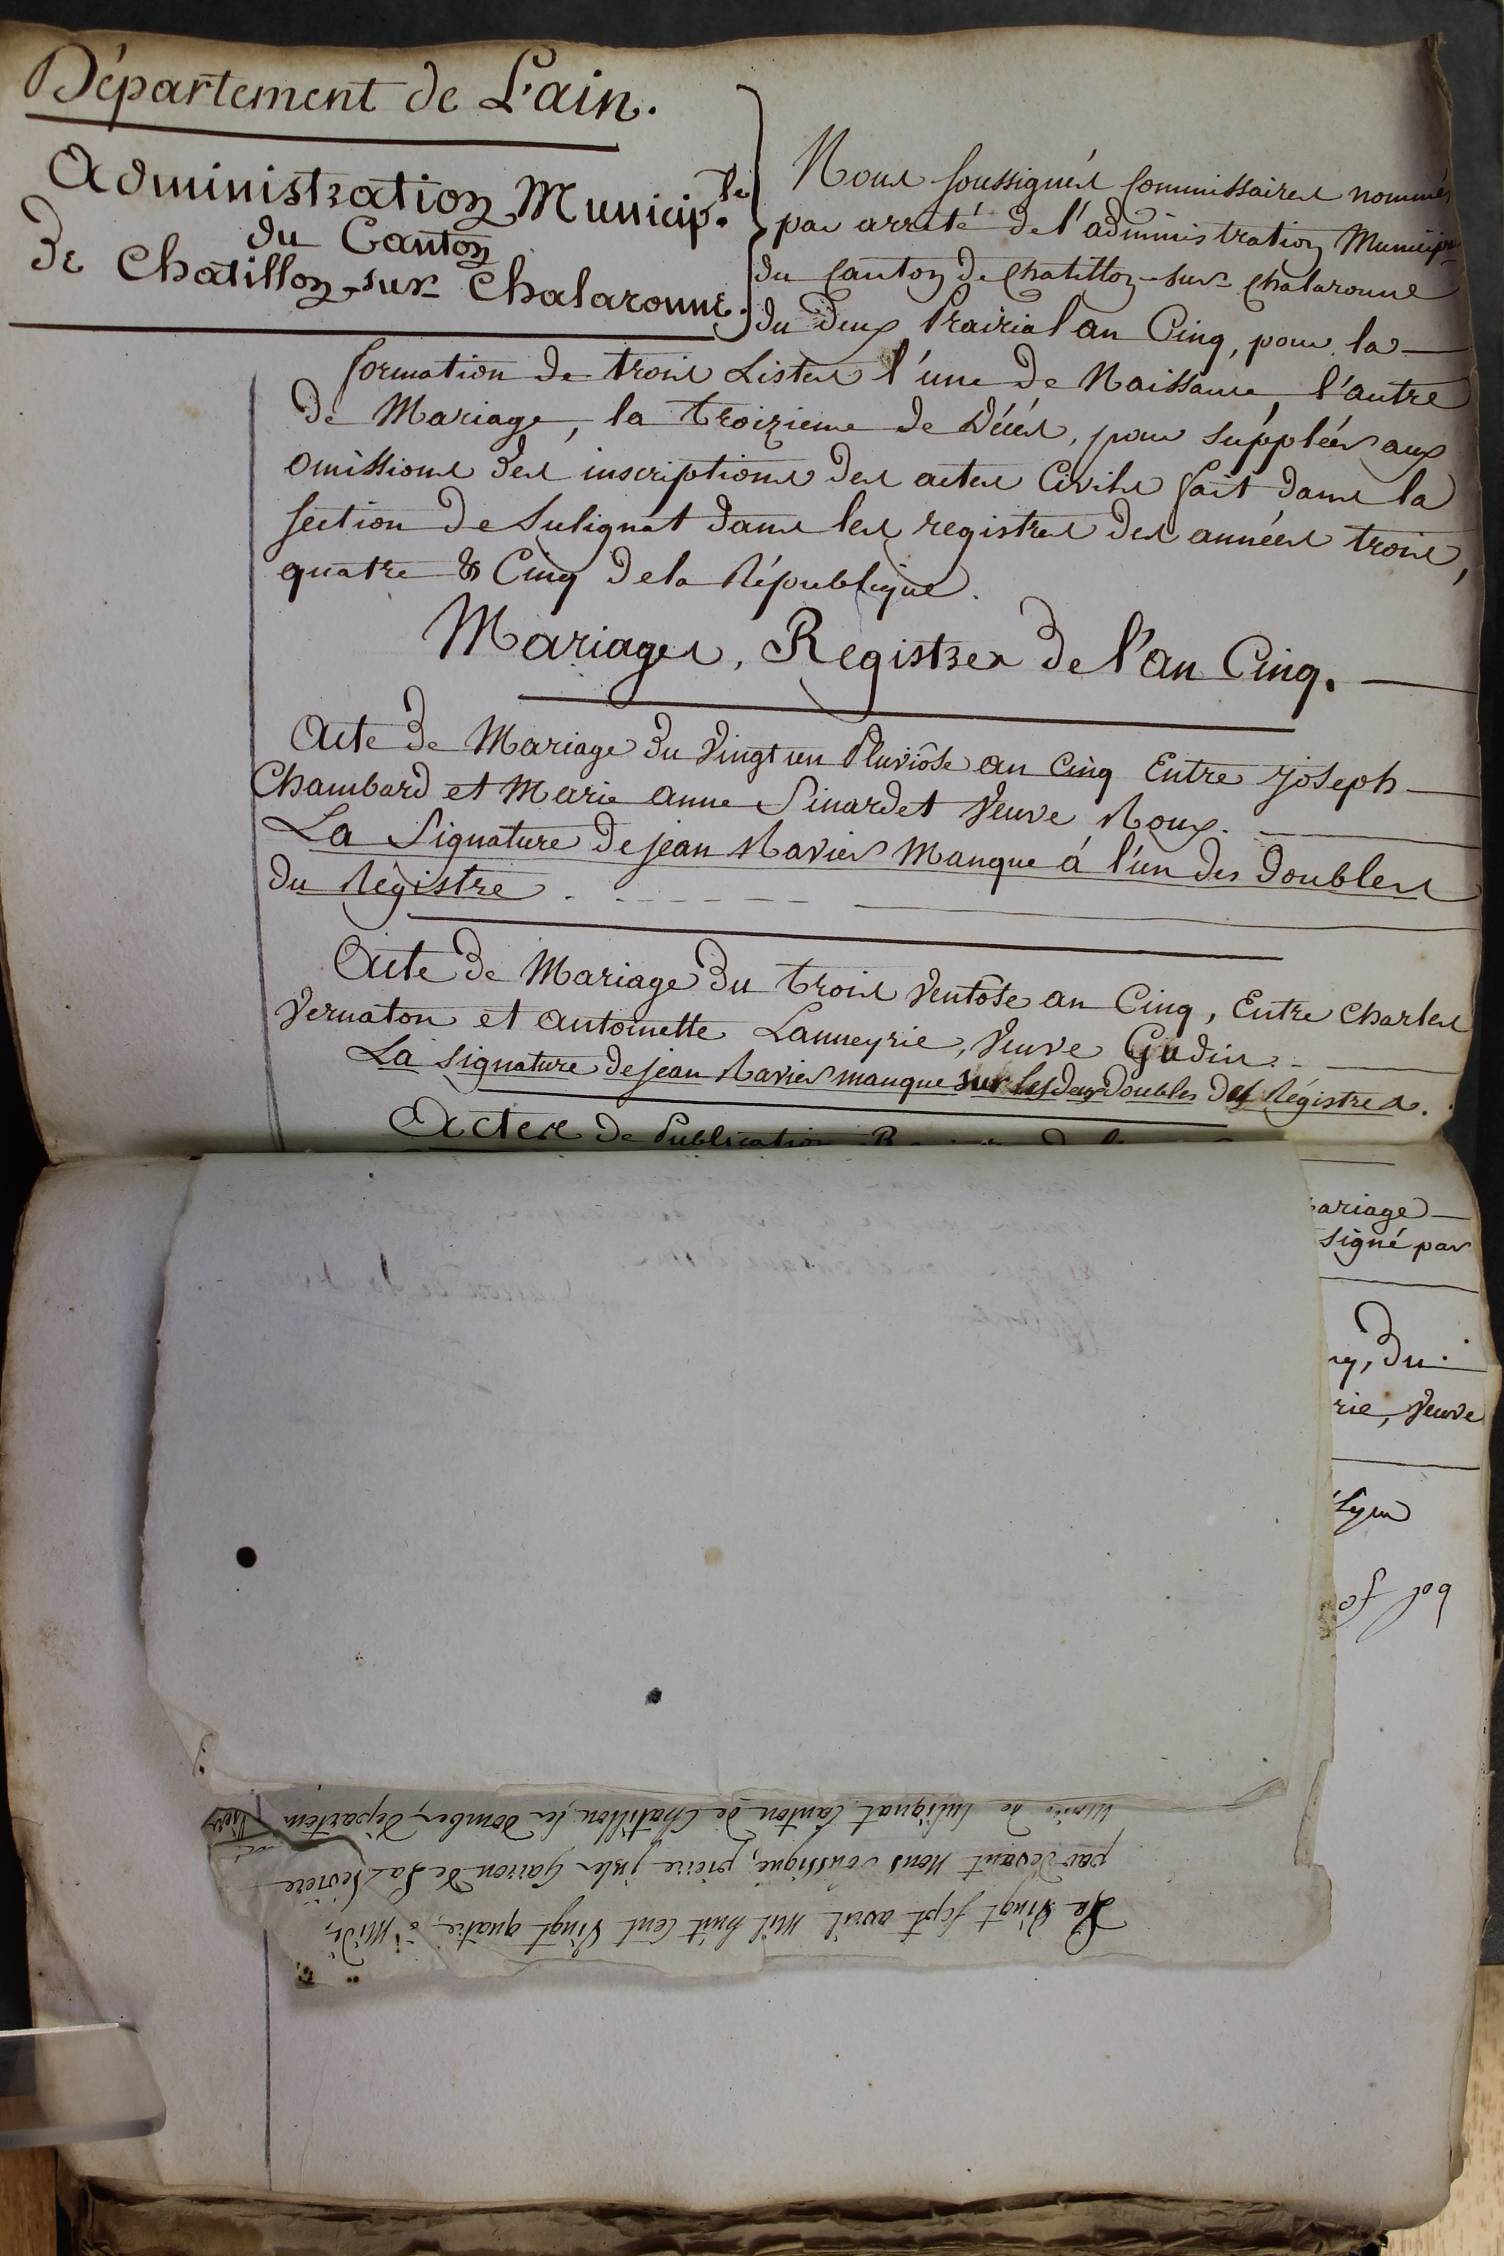 Département de L'ain.
Administration Municip.le
du Canton
de Chatillon-sur-Chalaronne.
Nous soussignés Commissaires nommés
par arrêté de l'administration Municip
du Canton de Chatillon-sur-Chalaronne
du deux Prairial an Cinq, pour la
formation de trois Listes l'une de Naissance, l'autre
de Mariage, la troizieme de Décés, pour suppléer aux
omissions des inscriptions des actes Civils fait dans la
section de Sulignat dans les registres des années trois,
quatre & Cinq de la République.
Mariages, Registres de l'an Cinq.
Acte de Mariage du Vingt un Pluviôse an Cinq Entre joseph
Chambard et Marie anne Pinardet Veuve Roux.
La Signature de jean Ravier Manque á l'un des Doubles
du Règistre
Acte de Mariage du trois Ventose an Cinq, Entre Charles
Vernaton et Antoinette Lanneyrie, Veuve Gudin.
La signature de jean Ravier manque sur les deux Doubles des Régistres.
Actes de Publication
ariage
signé par
, du
rie, Veuve
Le Vingt sept avril mil huit Cent Vingt quatre, à midi,
par devant Nous soussigné, pierre jules Garron de La Bevière
Maire de Sulignat Canton de Chatillon les Dombes, Départem